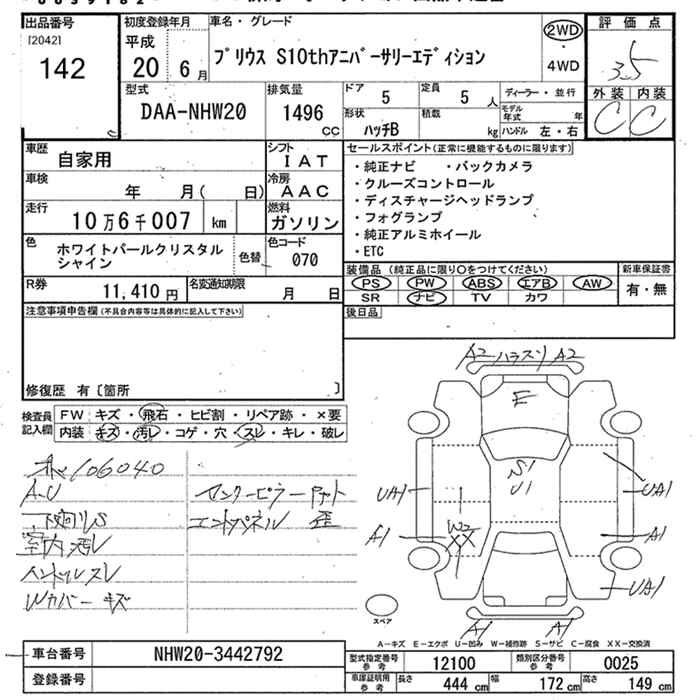 出品番号
[2042]
142
初度登録年月
平成
20 6月
車名・グレード
プリウス S10thアニバーサリーエディション
2WD
・
4WD
評価点
3.5
外装 内装
C C
型式
DAA-NHW20
排気量
1496
CC
ドア
5
定員
5 人
ディーラー・並行
形状
ハッチB
積載
kg
モデル年式
年
ハンドル 左・右
車歴
自家用
シフト
IAT
車検
年 月( 日)
冷房
AAC
走行
10万6千007 km
燃料
ガソリン
色
ホワイトパールクリスタルシャイン
色替
色コード
070
R券
11,410 円
名変通知期限
月 日
セールスポイント(正常に機能するものに限ります)
・純正ナビ ・バックカメラ
・クルーズコントロール
・ディスチャージヘッドランプ
・フォグランプ
・純正アルミホイール
・ETC
装備品 (純正品に限り○をつけてください)
PS PW ABS エアB AW
SR ナビ TV カワ
新車保証書
有・無
後日品
注意事項申告欄(不具合内容等は具体的に記入して下さい)
修復歴 有〔箇所 〕
検査員記入欄
FW キズ・飛石・ヒビ割・リペア跡・×要
内装 キズ・汚レ・コゲ・穴・スレ・キレ・破レ
106040
A-U
下廻りS
室内汚レ
ハンドルスレ
Wカバーキズ
センターピラー
エンドパネル 歪
A2 ハラスリ A2
E
S1
U1
UA1
UA1
A1
W2
XX
A1
UA1
A1
A1
スペア
A-キズ E-エクボ U-凹み W-補修跡 S-サビ C-腐食 XX-交換済
車台番号
NHW20-3442792
登録番号
型式指定番号
参考
12100
類別区分番号
参考
0025
車庫証明用
参考
長さ 444 cm
幅 172 cm
高さ 149 cm